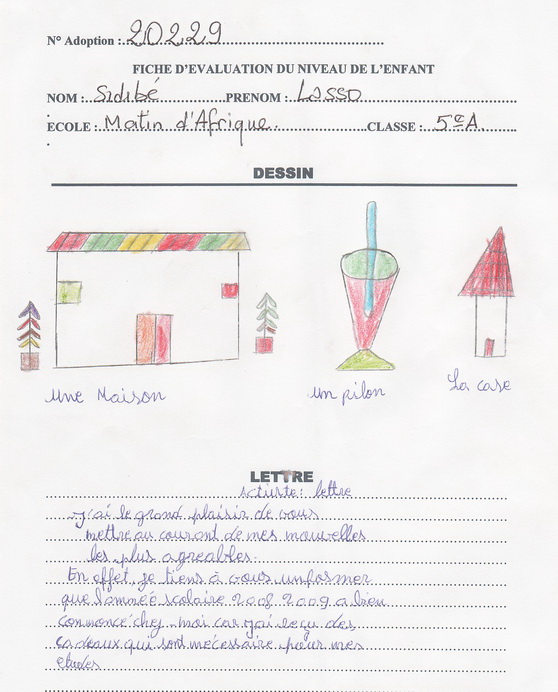 N° Adoption : 20229
FICHE D'EVALUATION DU NIVEAU DE L'ENFANT
NOM : Sidibé PRENOM : Lasso
ECOLE : Matin d'Afrique. CLASSE : 5eA.
DESSIN
une Maison un pilon La case
LETTRE
lettre
j'ai le grand plaisir de vous
mettre au courant de mes nouvelles
les plus agreables.
En effet, je tiens à vous informer
que l'année scolaire 2008.2009 a bien
commencé chez moi car j'ai reçu des
cadeaux qui sont nécessaire pour mes
etudes